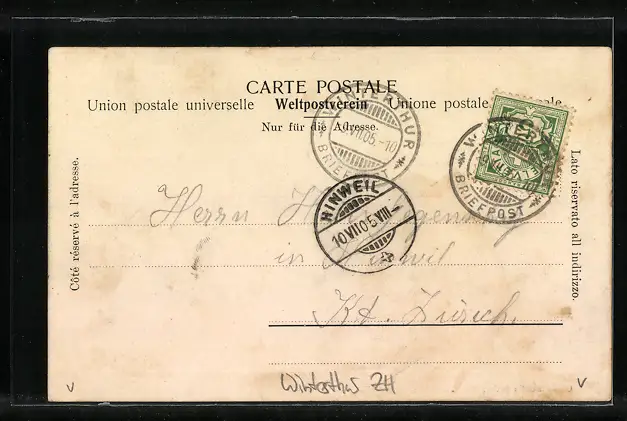 CARTE POSTALE
Union postale universelle Weltpostverein Unione postale
Nur für die Adresse.
Côté réservé à l'adresse.
Lato riservato all indirizzo.
WINTERTHUR
VII.05.-10
BRIEFPOST
BRIEFPOST
HINWEIL
10.VII.05.VIII
Herrn
in Hinwil
Kt. Zürich.
Winterthur ZH
V V